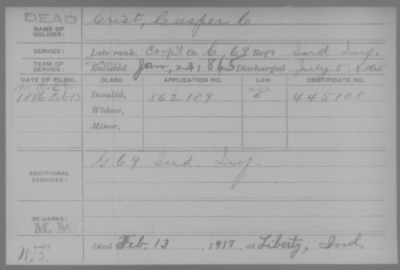 DEAD
NAME OF SOLDIER: Crist, Casper C
SERVICE: Late rank, Corp'l Co. C, 69 Reg't Ind Inf.
TERM OF SERVICE: Enlisted Jan, 1865 Discharged July 5, 1865
DATE OF FILING. CLASS. APPLICATION NO. LAW. CERTIFICATE NO.
1886 Feb 13 Invalid, 562189 445108
Widow,
Minor,
ADDITIONAL SERVICES: G 69 Ind. Inf.
REMARKS:
Died Feb. 13, 1917, at Liberty, Ind.